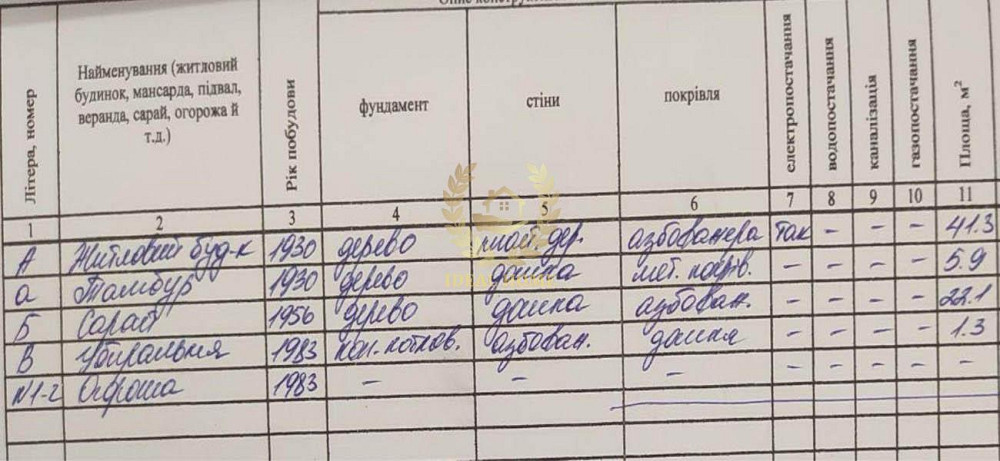 Літера, номер
Найменування (житловий
будинок, мансарда, підвал,
веранда, сарай, огорожа й
т.д.)
Рік побудови
фундамент
стіни
покрівля
електропостачання
водопостачання
каналізація
газопостачання
Площа, м²
1 2 3 4 5 6 7 8 9 10 11
А Житловий буд-к 1930 дерево дер. так - - - 41.3
а Тамбур 1930 дерево дошка мет. покрів. - - - - 5.9
Б Сарай 1956 дерево дошка азбован. - - - - 22.1
В Убиральня 1983 азбован. дошка - - - - 1.3
N1-2 Огорожа 1983 - - - - - - - -